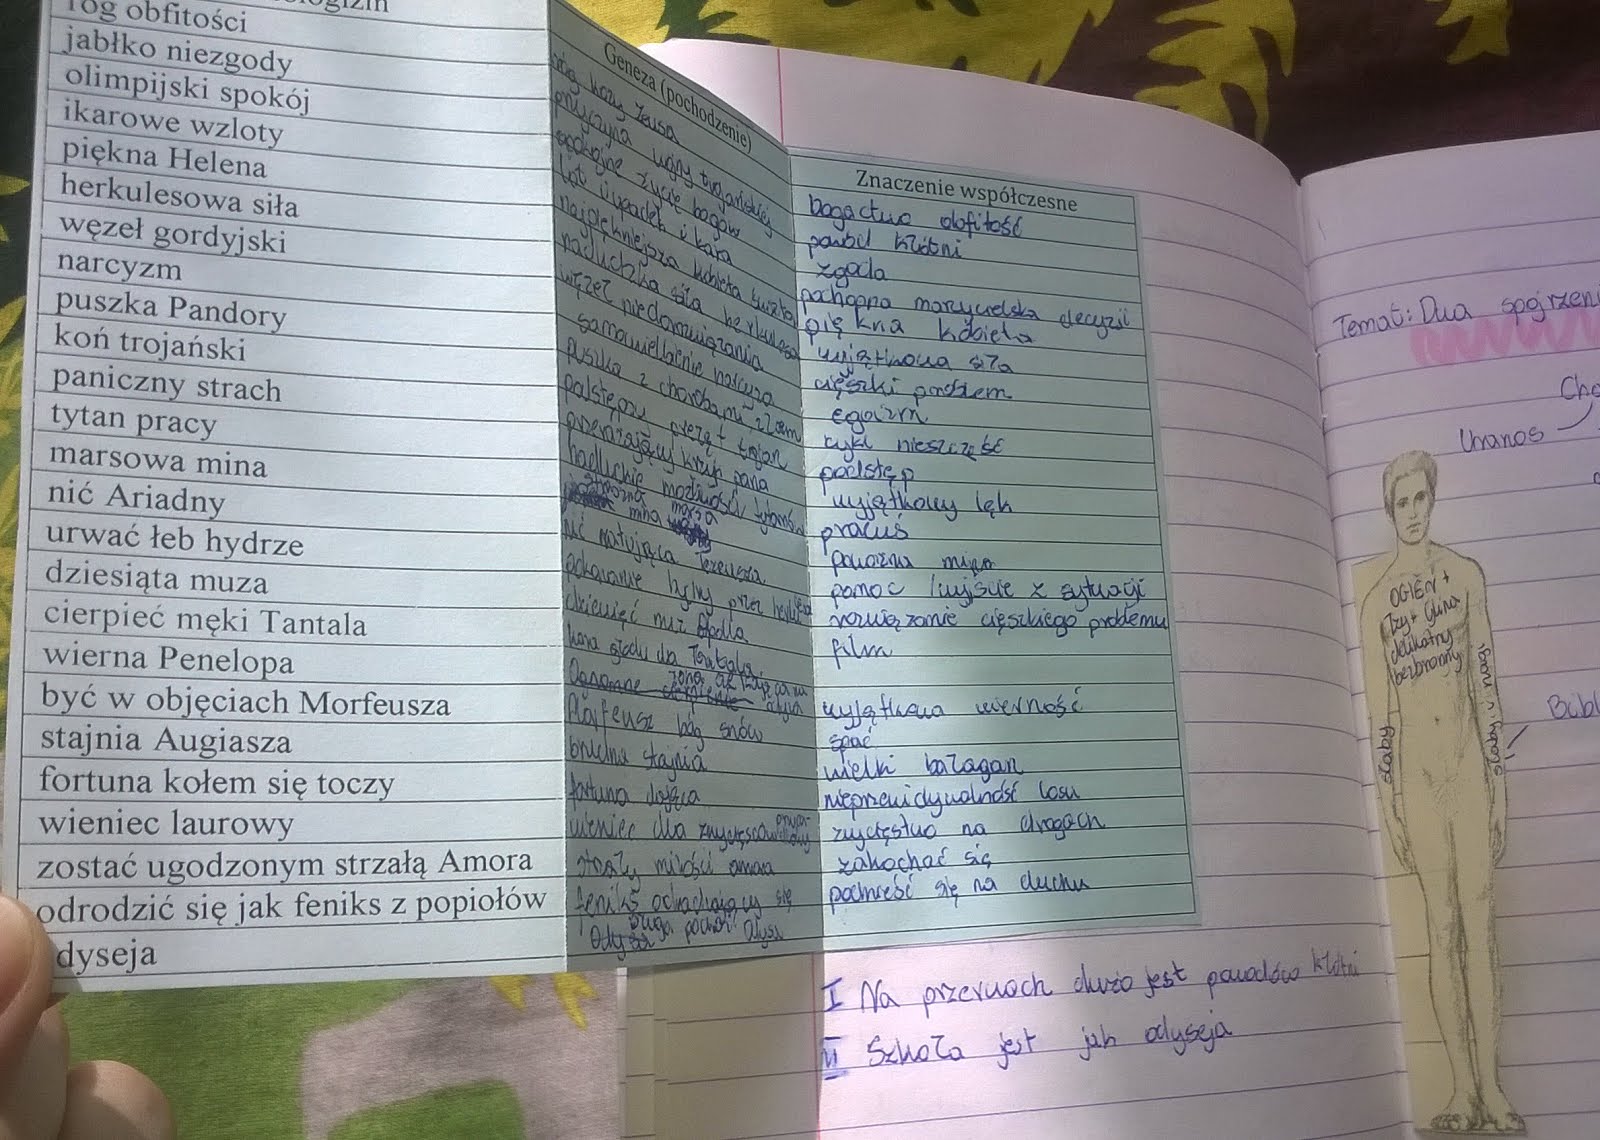 róg obfitości
jabłko niezgody
olimpijski spokój
ikarowe wzloty
piękna Helena
herkulesowa siła
węzeł gordyjski
narcyzm
puszka Pandory
koń trojański
paniczny strach
tytan pracy
marsowa mina
nić Ariadny
urwać łeb hydrze
dziesiąta muza
cierpieć męki Tantala
wierna Penelopa
być w objęciach Morfeusza
stajnia Augiasza
fortuna kołem się toczy
wieniec laurowy
zostać ugodzonym strzałą Amora
odrodzić się jak feniks z popiołów
dyseja
Geneza (pochodzenie)
róg kozy Zeusa
przyczyna wojny trojańskiej
spokojne życie bogów
lot upadek i kara
najpiękniejsza kobieta świata
nieludzka siła herkulesa
węzeł niedorozwiązania
samouwielbienie narcyza
puszka z chorobami złem
podstępny prezęt trojan
przerażający krzyk pana
nadludzkie możliwości tytanów
groźna mina marsa
nić ratująca Tezeusza
pokonanie hydry przez
dziewięć muz Apolla
kara głodu dla Tantala
żona
Morfeusz bóg snów
brudna stajnia
fortuna
wieniec dla zwycięsców
strzały miłości amora
feniks odradzający się
Długa podróż
Znaczenie współczesne
bogactwo obfitość
powód kłótni
zgoda
pochopna marzycielska decyzji
piękna kobieta
wyjątkowa siła
cięszki problem
egoizm
cykl nieszczęść
podstęp
wyjątkowy lęk
pracuś
poważna mina
pomoc / wyjście z sytuacji
rozwiązanie cięszkiego problemu
film
wyjątkowa wierność
spać
wielki bałagan
nieprzewidywalność losu
zwycięstwo na drogach
zakochać się
podnieść się na duchu
I Na przerwach dużo jest powodów kłótni
II Szkoła jest jak odyseja
Temat: Dwa
Uranos
OGIEŃ +
łzy + Glina
delikatny
bezbronny
słaby